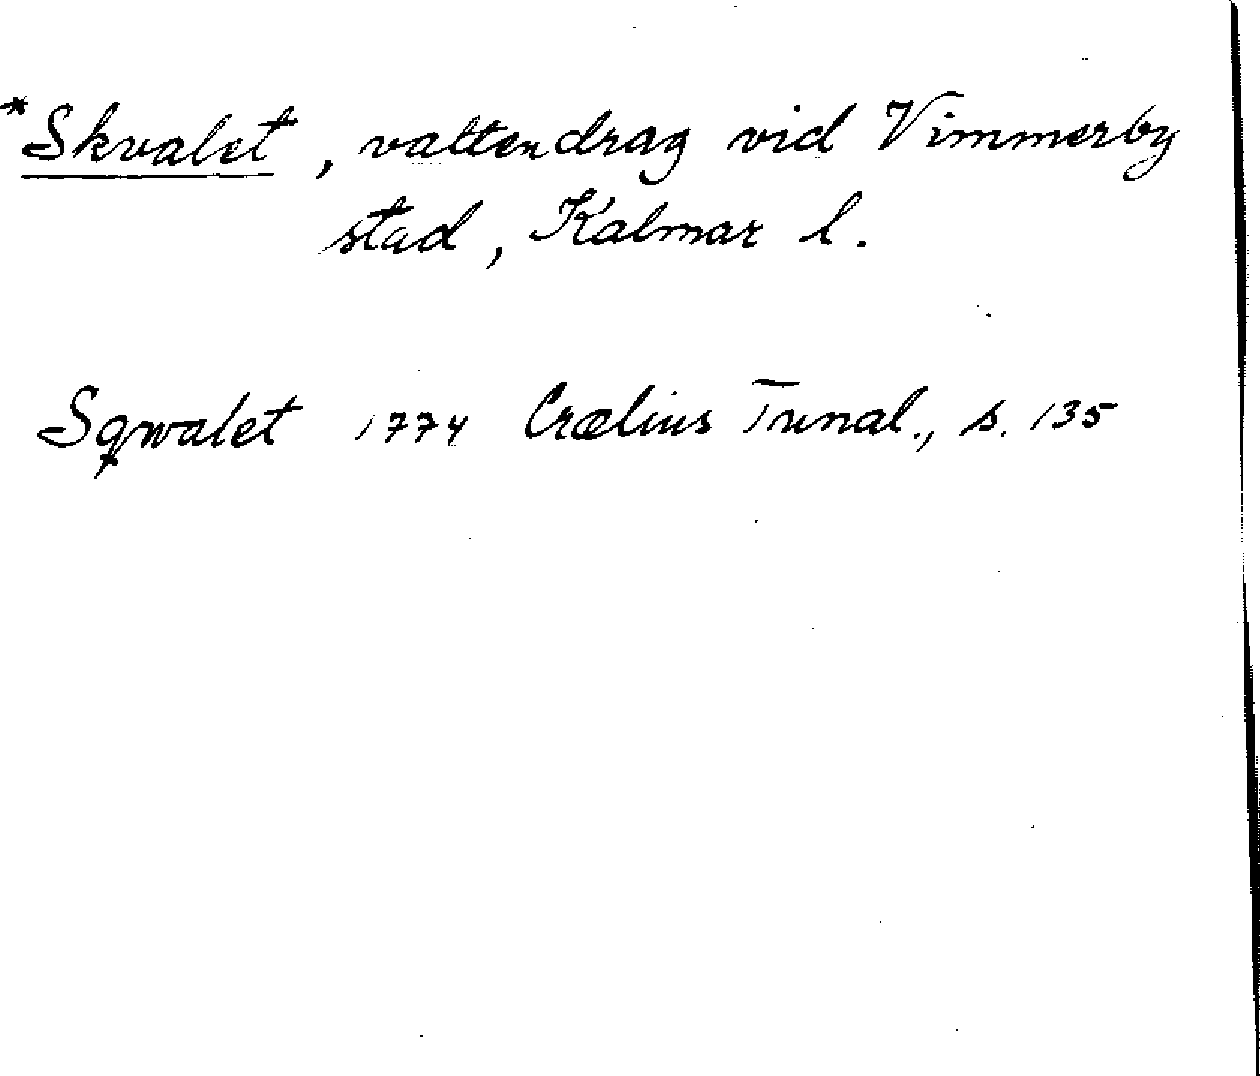 *Skvalet, vattendrag vid Vimmerby
stad, Kalmar l.
Sqwalet 1774 Crælius Tunal., s. 135